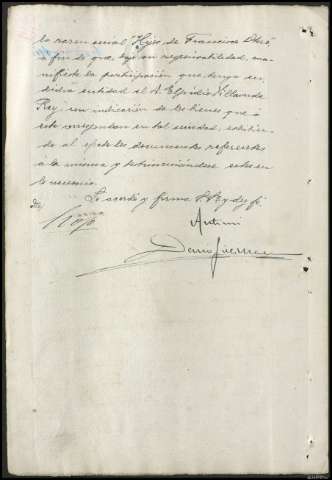 la razon social "Hijos de Francisco
a fin de que, bajo su responsabilidad, ma-
nifieste la participación que tenga en
dicha entidad el D. Elpidio Villaverde
Rey; con indicación de los bienes que a
este correspondan en tal entidad, exhibien-
do al efecto los documentos referentes
á la misma y
lo necesario.
Lo acordó y firma S.Sª y doy fé
Ante mi